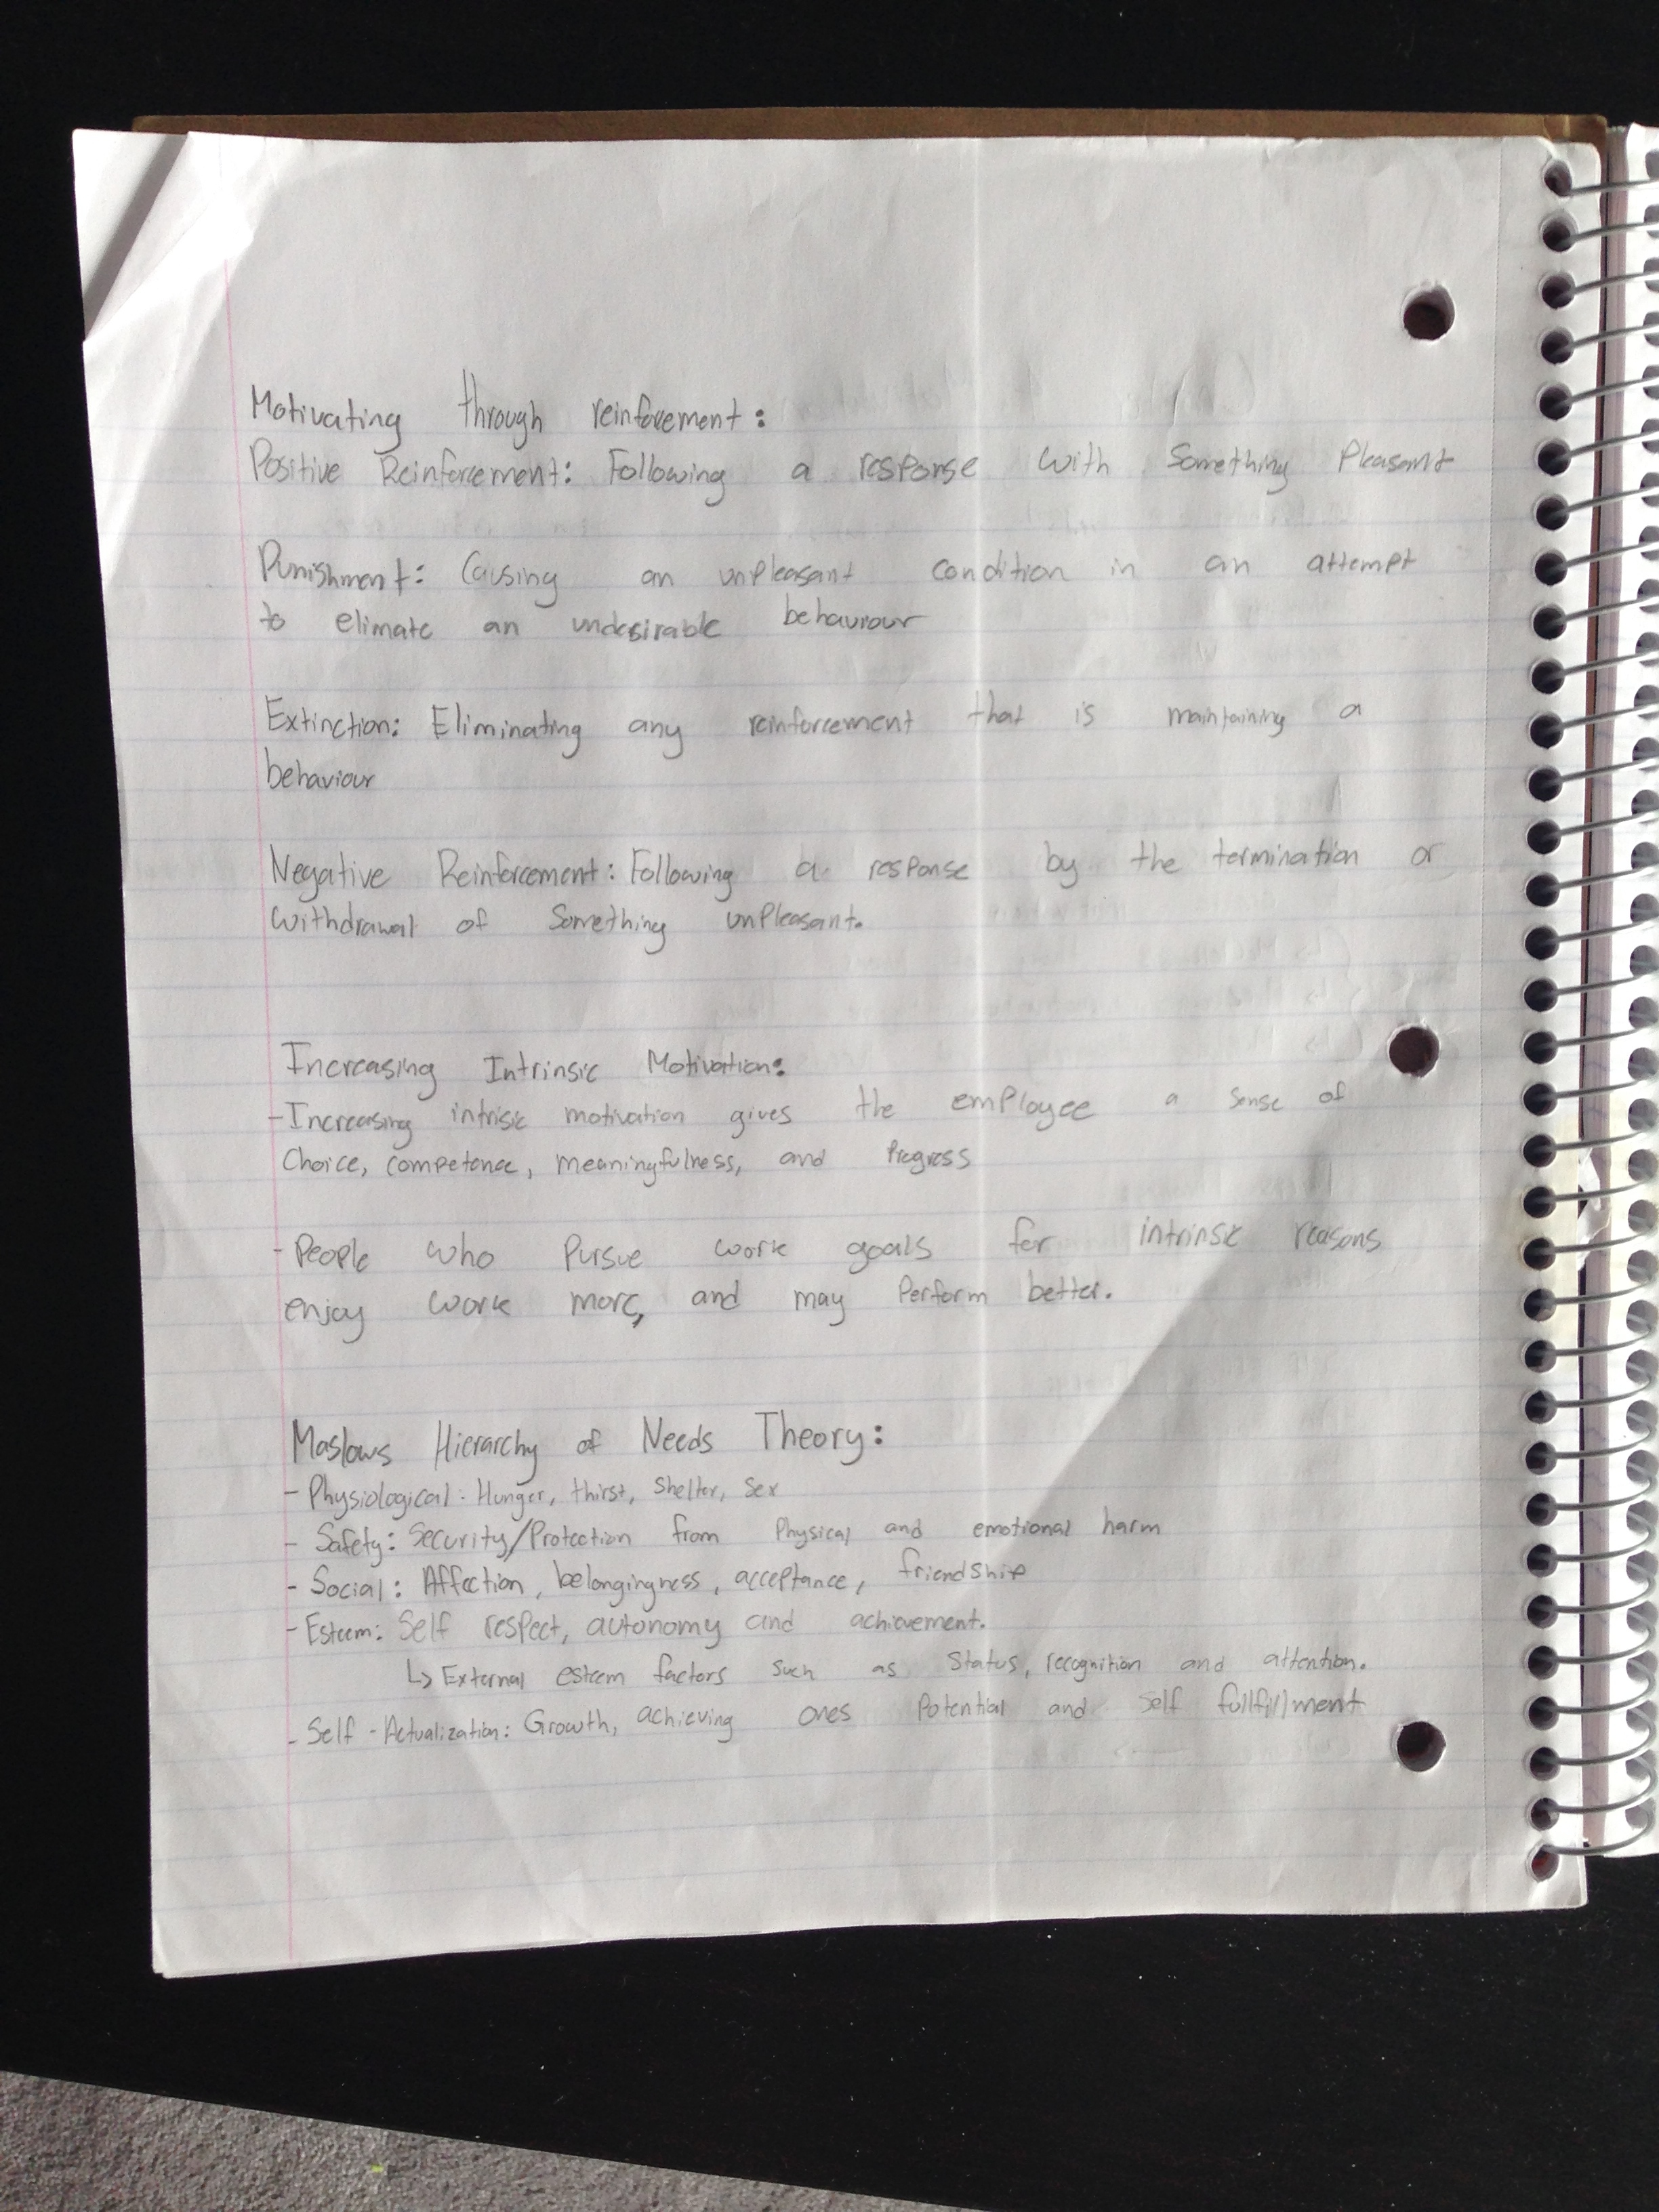 Motivating through reinforcement:
Positive Reinforcement: Following a response with something Pleasant
Punishment: Causing an unpleasant condition in an attempt
to elimate an undesirable behaviour
Extinction: Eliminating any reinforcement that is maintaining a
behaviour
Negative Reinforcement: Following a response by the termination or
withdrawal of something unpleasant.
Increasing Intrinsic Motivation:
-Increasing intrisic motivation gives the employee a sense of
choice, competence, meaningfulness, and Progress
-People who pursue work goals for intrinsic reasons
enjoy work more, and may perform better.
Maslows Hierarchy of Needs Theory:
- Physiological: Hunger, thirst, shelter, sex
- Safety: Security/Protection from Physical and emotional harm
- Social: Affection, belongingness, acceptance, friendship
- Esteem: Self respect, autonomy and achievement.
↳ External esteem factors such as status, recognition and attention.
- Self-Actualization: Growth, achieving ones potential and self fullfillment